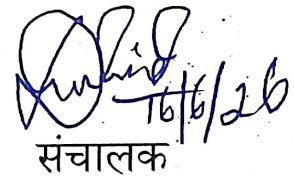 16/6/26
संचालक